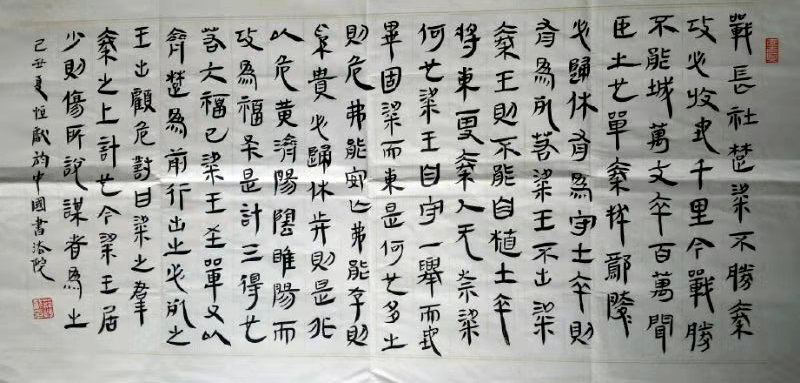 戰長社楚梁不勝秦
攻必收地千里今戰勝
不能城萬丈卒百萬聞
臣士也單秦拔鄢陵
必歸休者為守士卒則
者為若梁王不出梁
秦王則不能自植士卒
將東更秦人无梁
何也梁王自守一舉而地
畢固梁而東是何也多之
則危弗能安亡弗能存則
貴必歸休兵則是非
以危黃濟陽睢陽而
攻為福是計三得也
若大福已梁王在單父以
齊楚為前行出之必死之
王出顧危對曰梁之羣
秦之上計也今梁王居
少則傷所說謀者為之
己丑夏恒獻於中國書法院